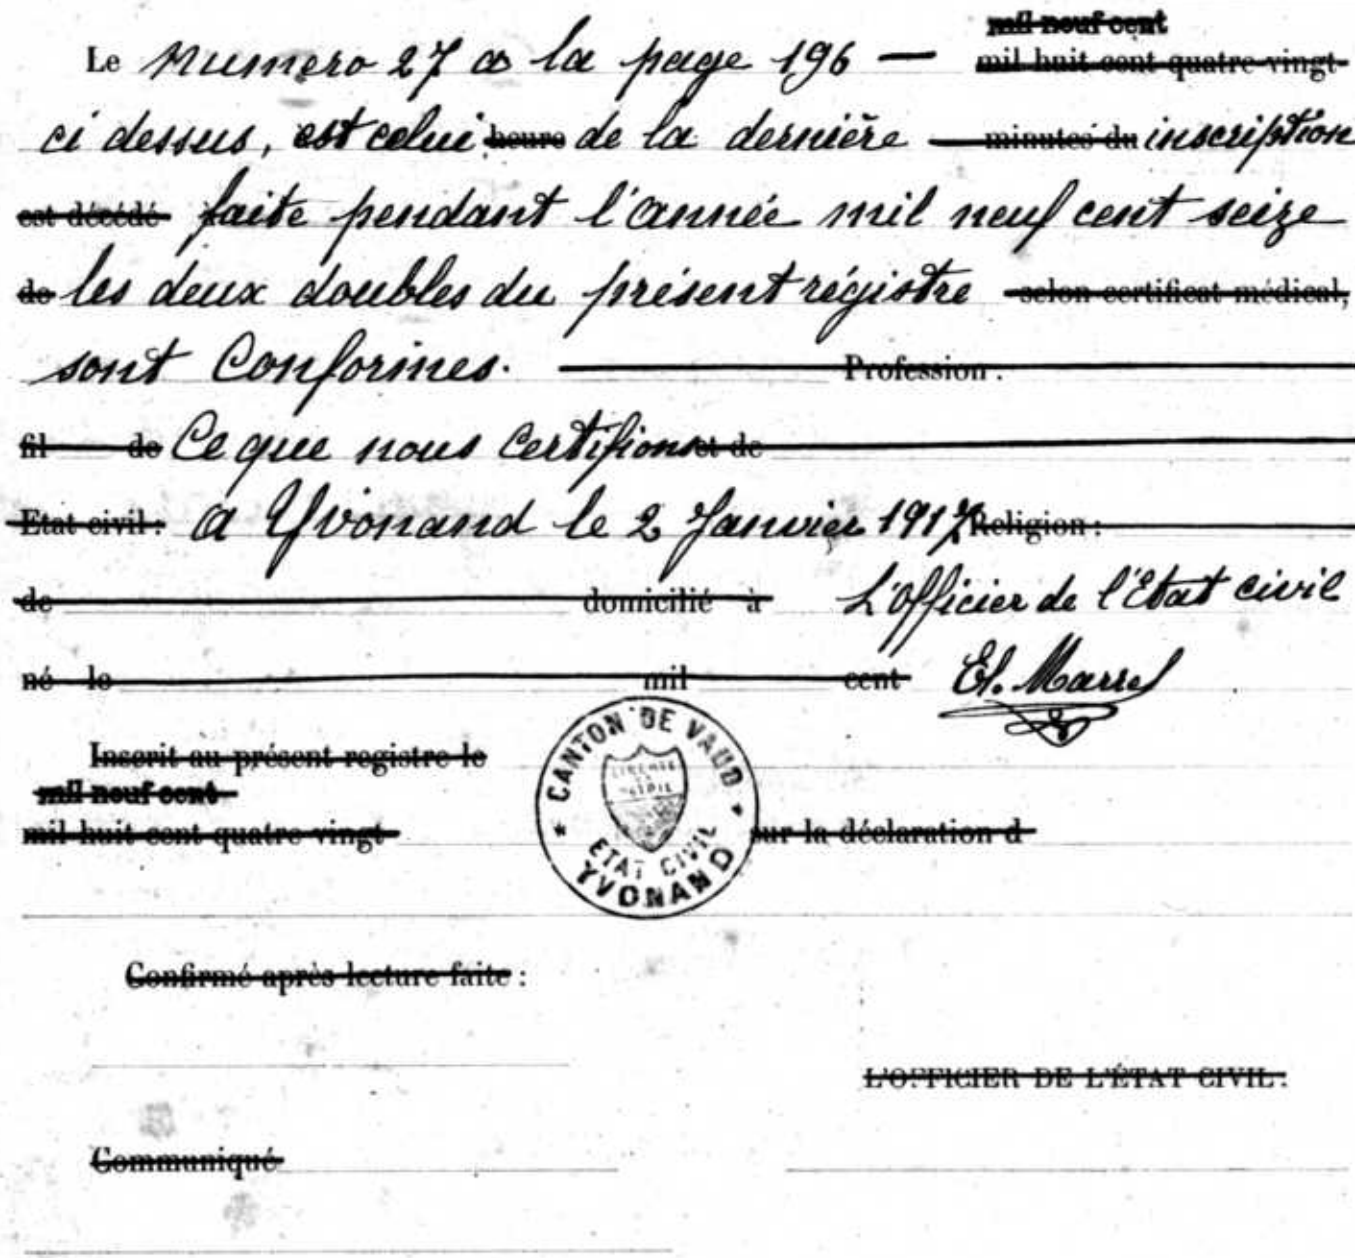 mil neuf cent
Le numero 27 a la page 196 — mil huit cent quatre-vingt
ci dessus, est celui heure de la dernière — minutes du inscription
est décédé faite pendant l'année mil neuf cent seize
de les deux doubles du présent régistre selon certificat médical,
sont Conformes. — Profession :
fil de Ce que nous Certifions et de
Etat civil : a Yvonand le 2 Janvier 1917 Religion :
de domicilié à L'officier de l'Etat civil
né le mil cent El. Marrel
CANTON DE VAUD
LIBERTÉ
ET
PATRIE
ETAT CIVIL
YVONAND
Inscrit au présent registre le
mil neuf cent
mil huit cent quatre-vingt sur la déclaration d
Confirmé après lecture faite :
L'OFFICIER DE L'ÉTAT CIVIL :
Communiqué